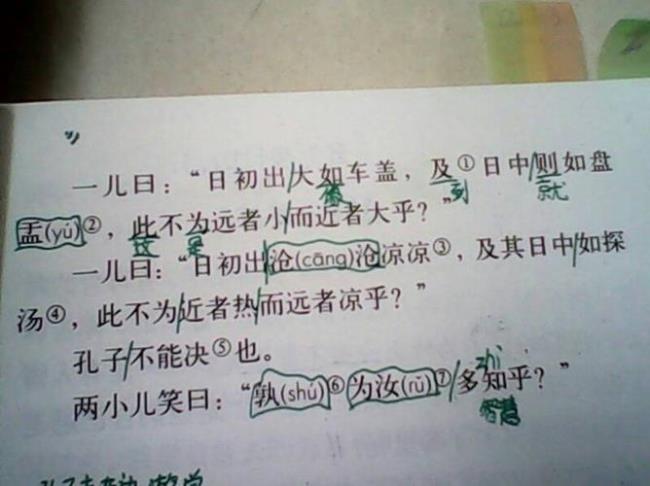 一儿曰：“日初出/大如车盖，及①日中/则如盘
像 到 就
盂(yú)②，此不为远者小/而近者大乎？”
这 是
一儿曰：“日初出/沧(cāng)沧凉凉③，及其日中/如探
汤④，此不为/近者热/而远者凉乎？”
孔子/不能决⑤也。
zhì
两小儿笑曰：“孰(shú)⑥为汝(rǔ)⑦/多知乎？”
智慧